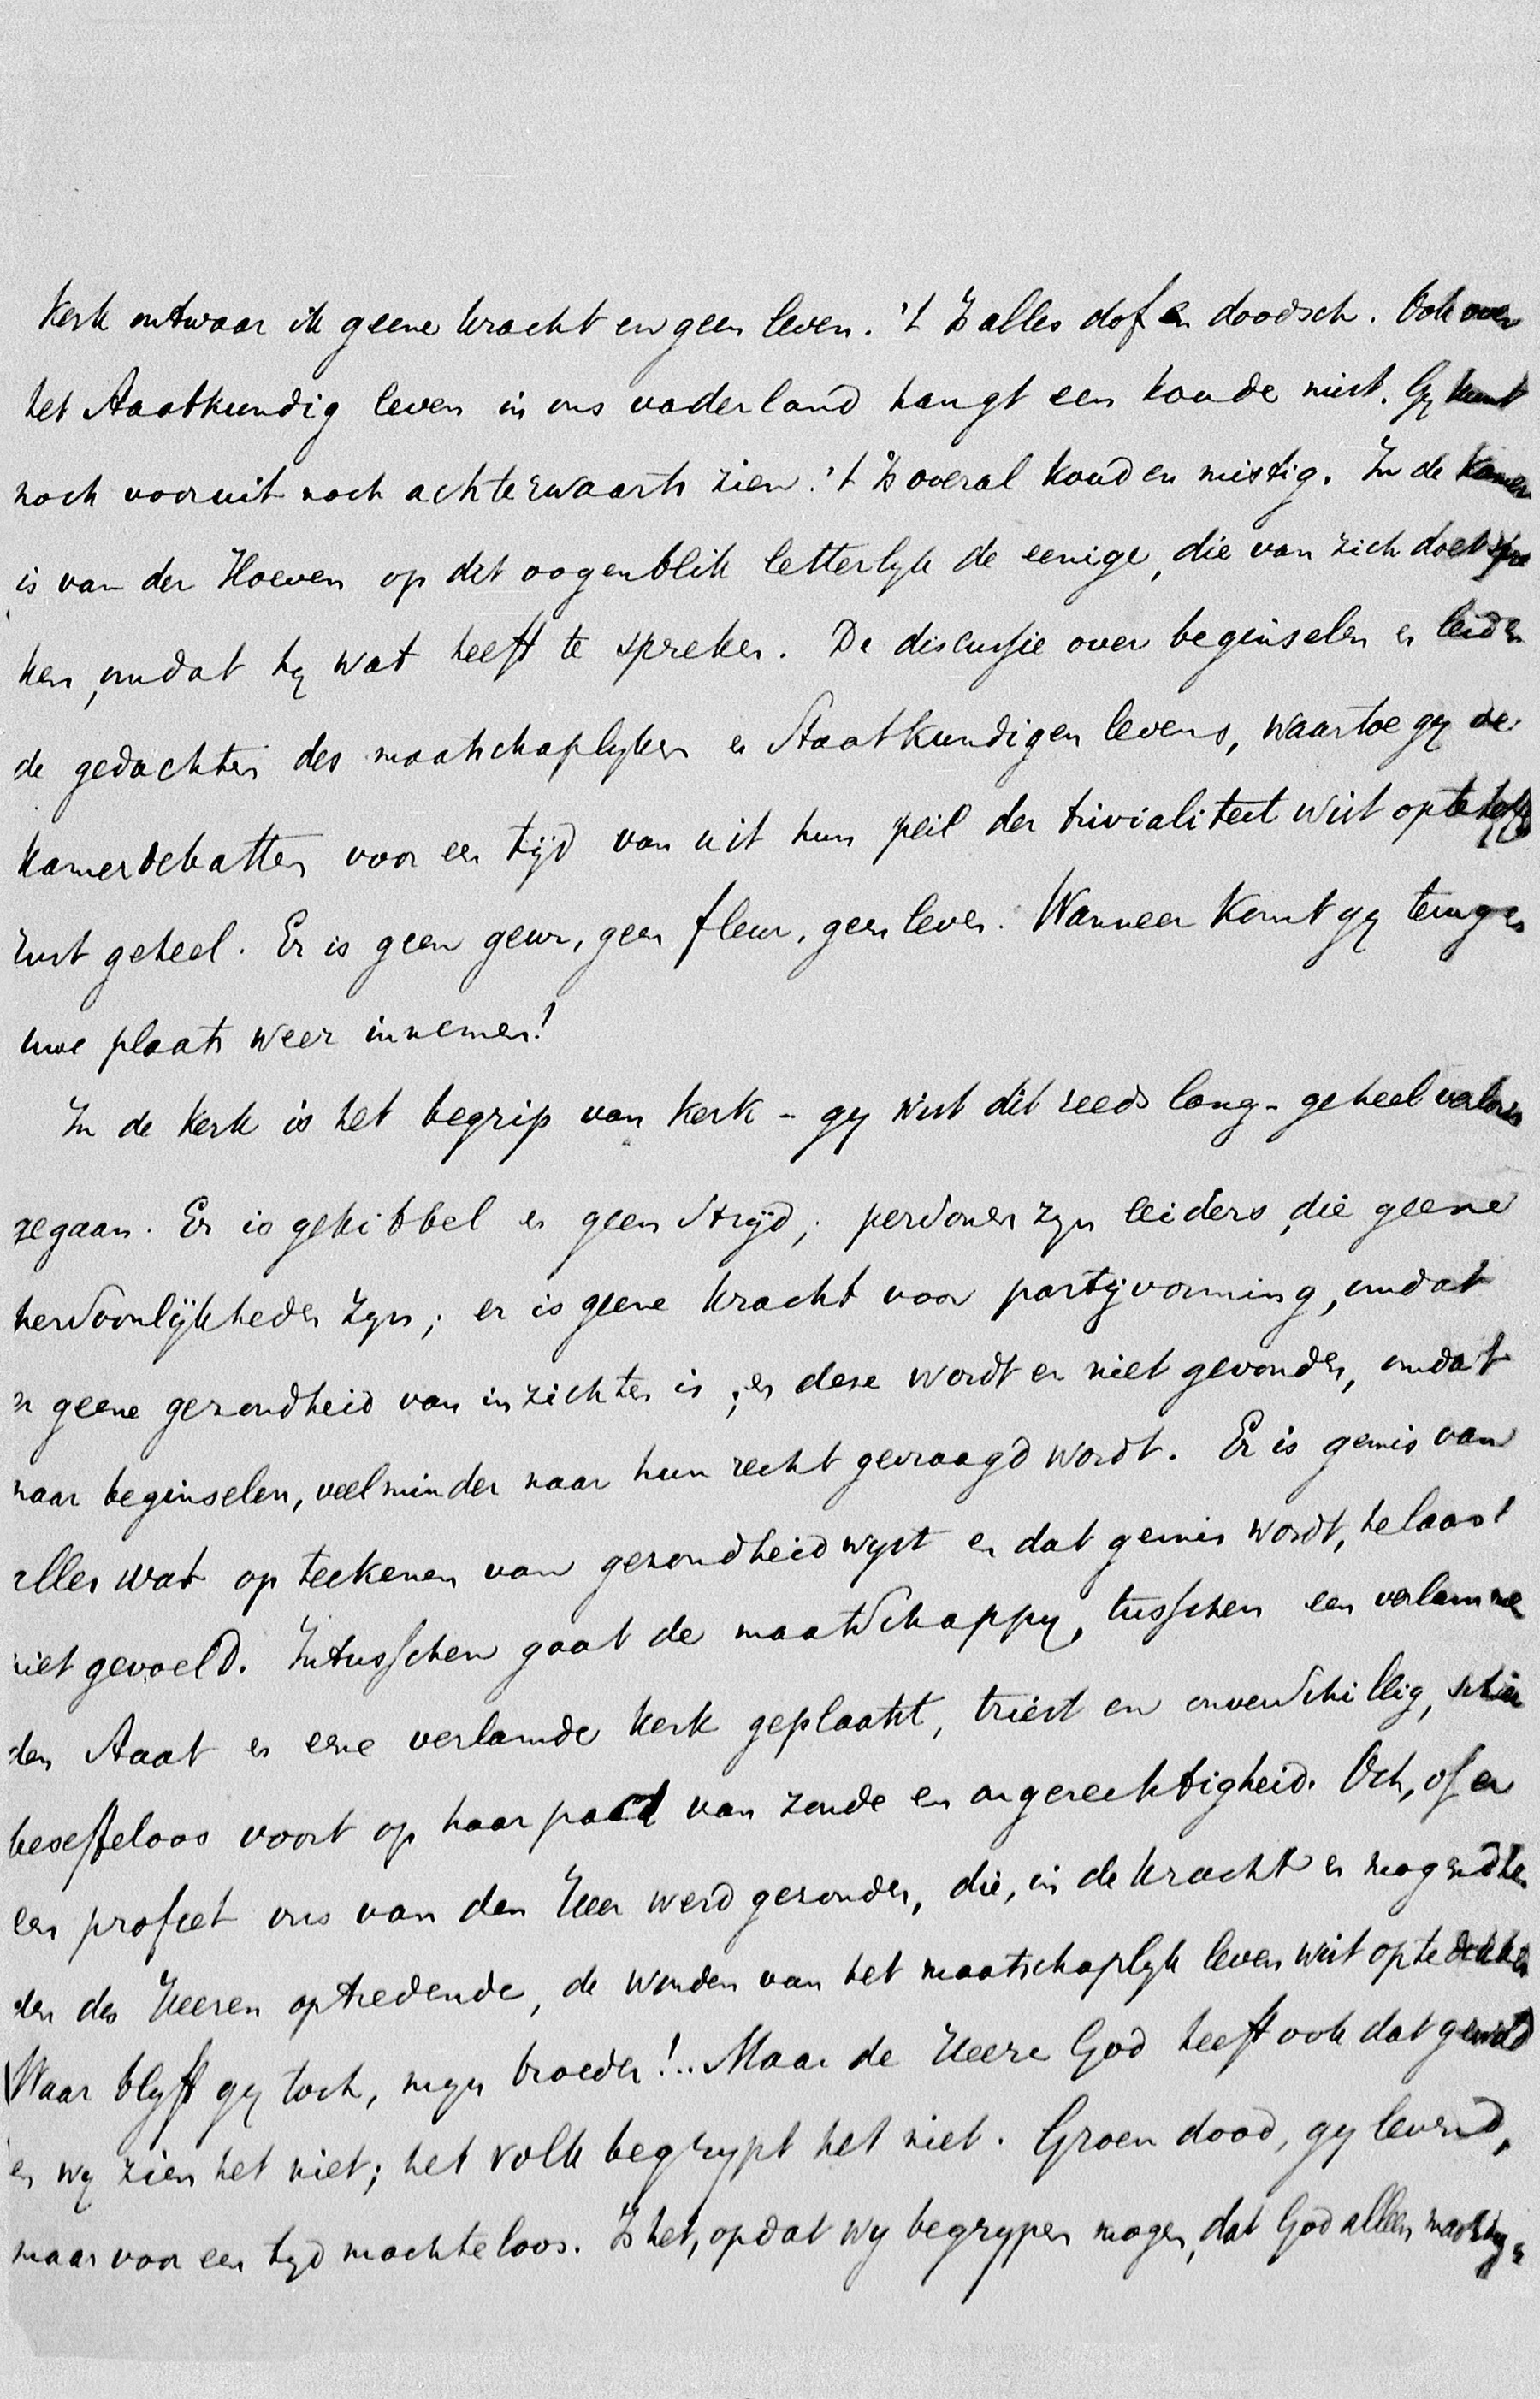 Kerk ontwaar ik geene kracht en geen leven. 't Is alles dof en doodsch. Ook over
het Staatkundig leven in ons vaderland hangt een koude mist. Gy kunt
noch vooruit noch achterwaarts zien: 't Is overal koud en mistig. In de Kamer
is van der Hoeven op dit oogenblik letterlyk de eenige, die van zich doet spre
ken, omdat hy wat heeft te spreken. De discussie over beginselen en leiden
de gedachten des maatschaplyken en Staatkundigen levens, waartoe gy de
kamerdebatten voor een tijd van uit hun peil der trivialiteit wist op te heffen
rust geheel. Er is geen geur, geen fleur, geen leven. Wanneer komt gy terug en
uwe plaats weer innemen!
In de Kerk is het begrip van Kerk - gy wist dit reeds lang - geheel verloren
gegaan. Er is gekibbel en geen Strijd; personen zyn leiders, die geene
persoonlijkheden zyn; er is geene kracht voor partijvorming, omdat
er geene gezondheid van inzichten is; en deze wordt er niet gevonden, omdat
naar beginselen, veel minder naar hun recht gevraagd wordt. Er is gemis van
alles wat op teekenen van gezondheid wyst en dat gemis wordt, helaas!
niet gevoeld. Intusschen gaat de maatschappy, tusschen een verlam
den Staat en eene verlamde Kerk geplaatst, triest en onverschillig, schier
beseffeloos voort op haar pad van zonde en ongerechtigheid. Och, of er
een profeet ons van den Heer werd gezonden, die, in de kracht en mogendhe
den des Heeren optredende, de wonden van het maatschaplyk leven wist op te dekken
Waar blyft gy toch, myn broeder!.. Maar de Heere God heeft ook dat gewild
en wy zien het niet; het volk begrypt het niet. Groen dood, gy levend,
maar voor een tyd machteloos. Is het, opdat wy begrypen mogen, dat God alleen machtig